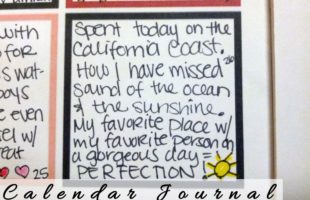 with
FOR
wat-
days
e even
el w/
reat
25
Spent today on the
California Coast.
How I have missed
sound of the ocean
& the sunshine.
My favorite place w/
my favorite person on
a gorgeous day =
PERFECTION
26
Calendar Journal